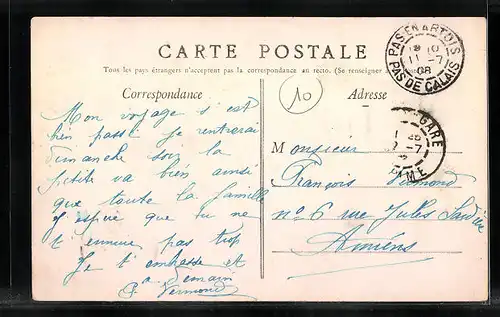 CARTE POSTALE
Tous les pays étrangers n'acceptent pas la correspondance au recto. (Se renseigner
Correspondance
Mon voyage s'est
bien passé Je rentrerai
dimanche soir la
petite va bien ainsi
que toute la famille
J'espère que tu ne
t'ennuie pas trop
Je t'embrasse et
a demain
Vermond
10
Adresse
Monsieur
François Vermond
n° 6 rue Jules
Amiens
PAS EN ARTOIS
11 -7
08
PAS DE CALAIS
GARE